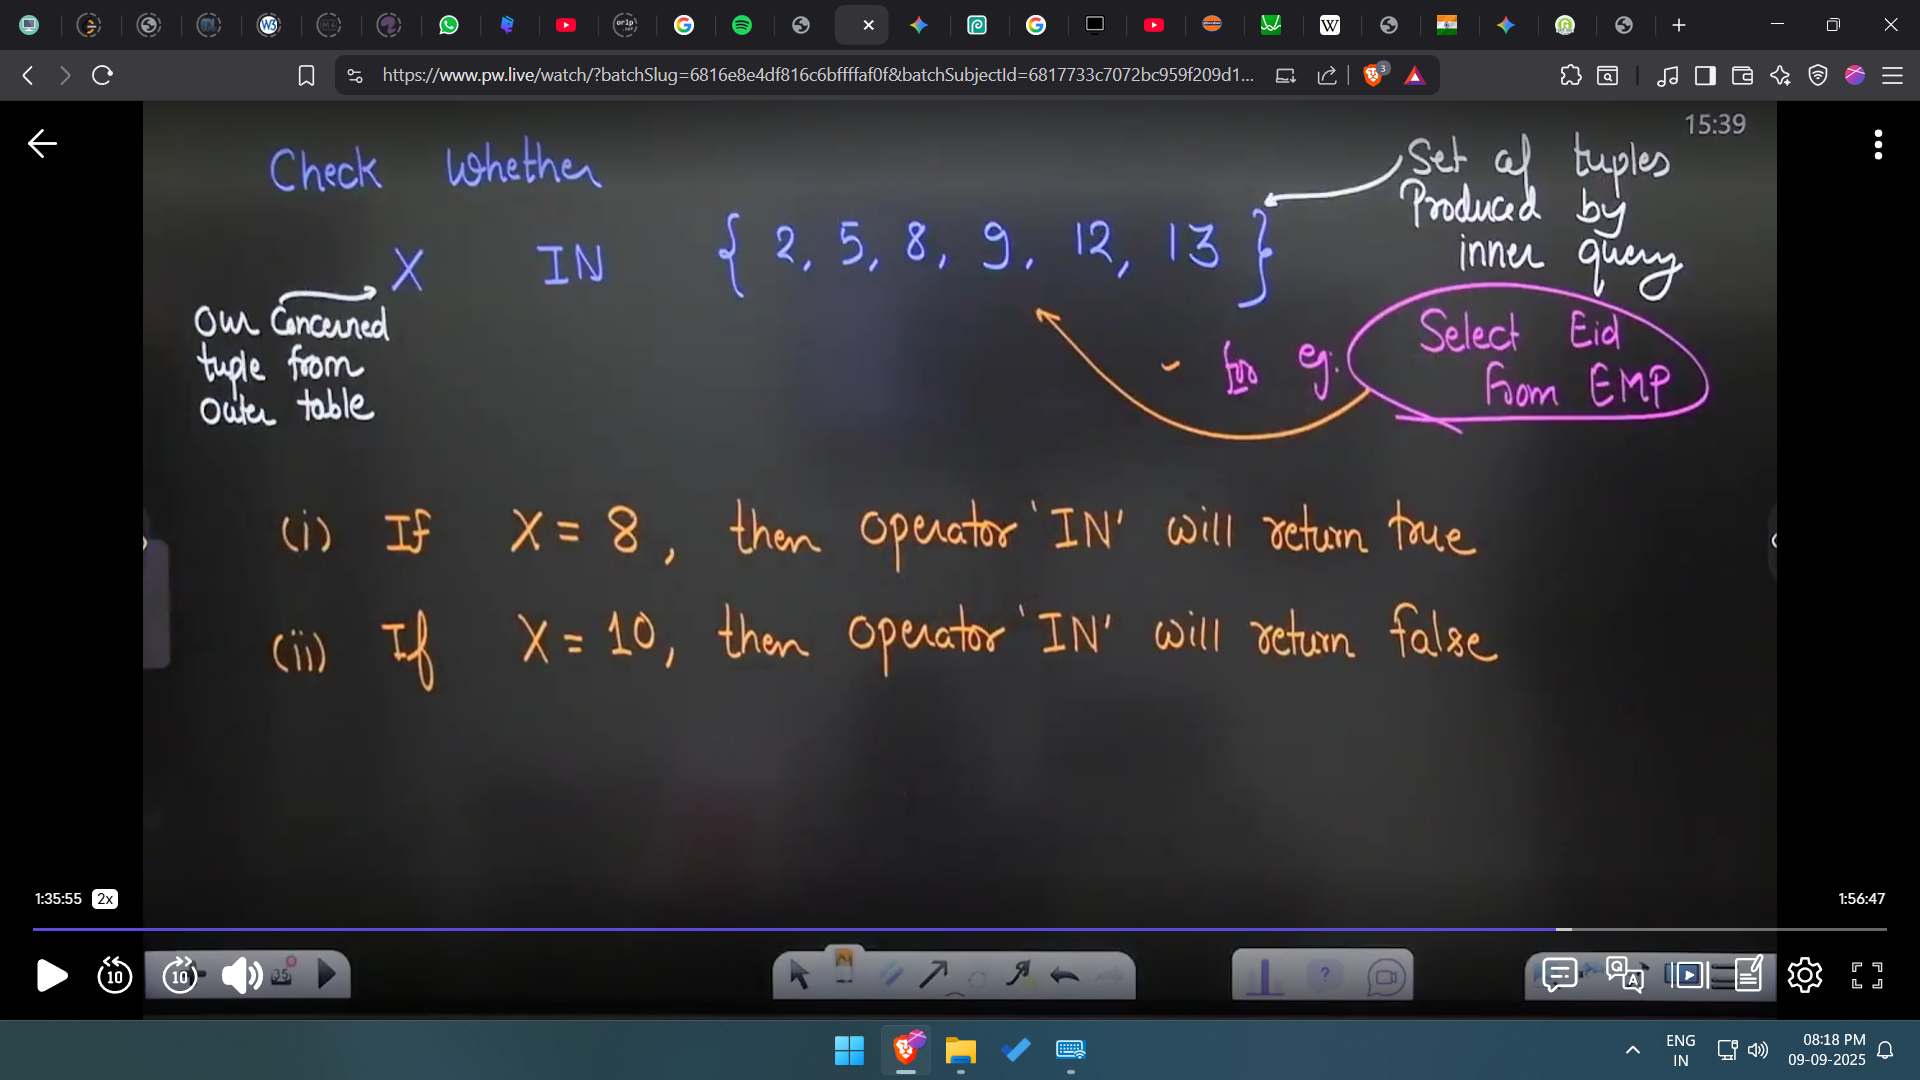 https://www.pw.live/watch/?batchSlug=6816e8e4df816c6bffffaf0f&batchSubjectId=6817733c7072bc959f209d1...
3
15:39
Check Whether
X IN { 2, 5, 8, 9, 12, 13 }
Set of tuples
Produced by
inner query
Our Concerned
tuple from
Outer table
for eg:
Select Eid
from EMP
(i) If X = 8, then operator 'IN' will return true
(ii) If X = 10, then operator 'IN' will return false
1:35:55 2x
1:56:47
10
10
35
ENG
IN
08:18 PM
09-09-2025